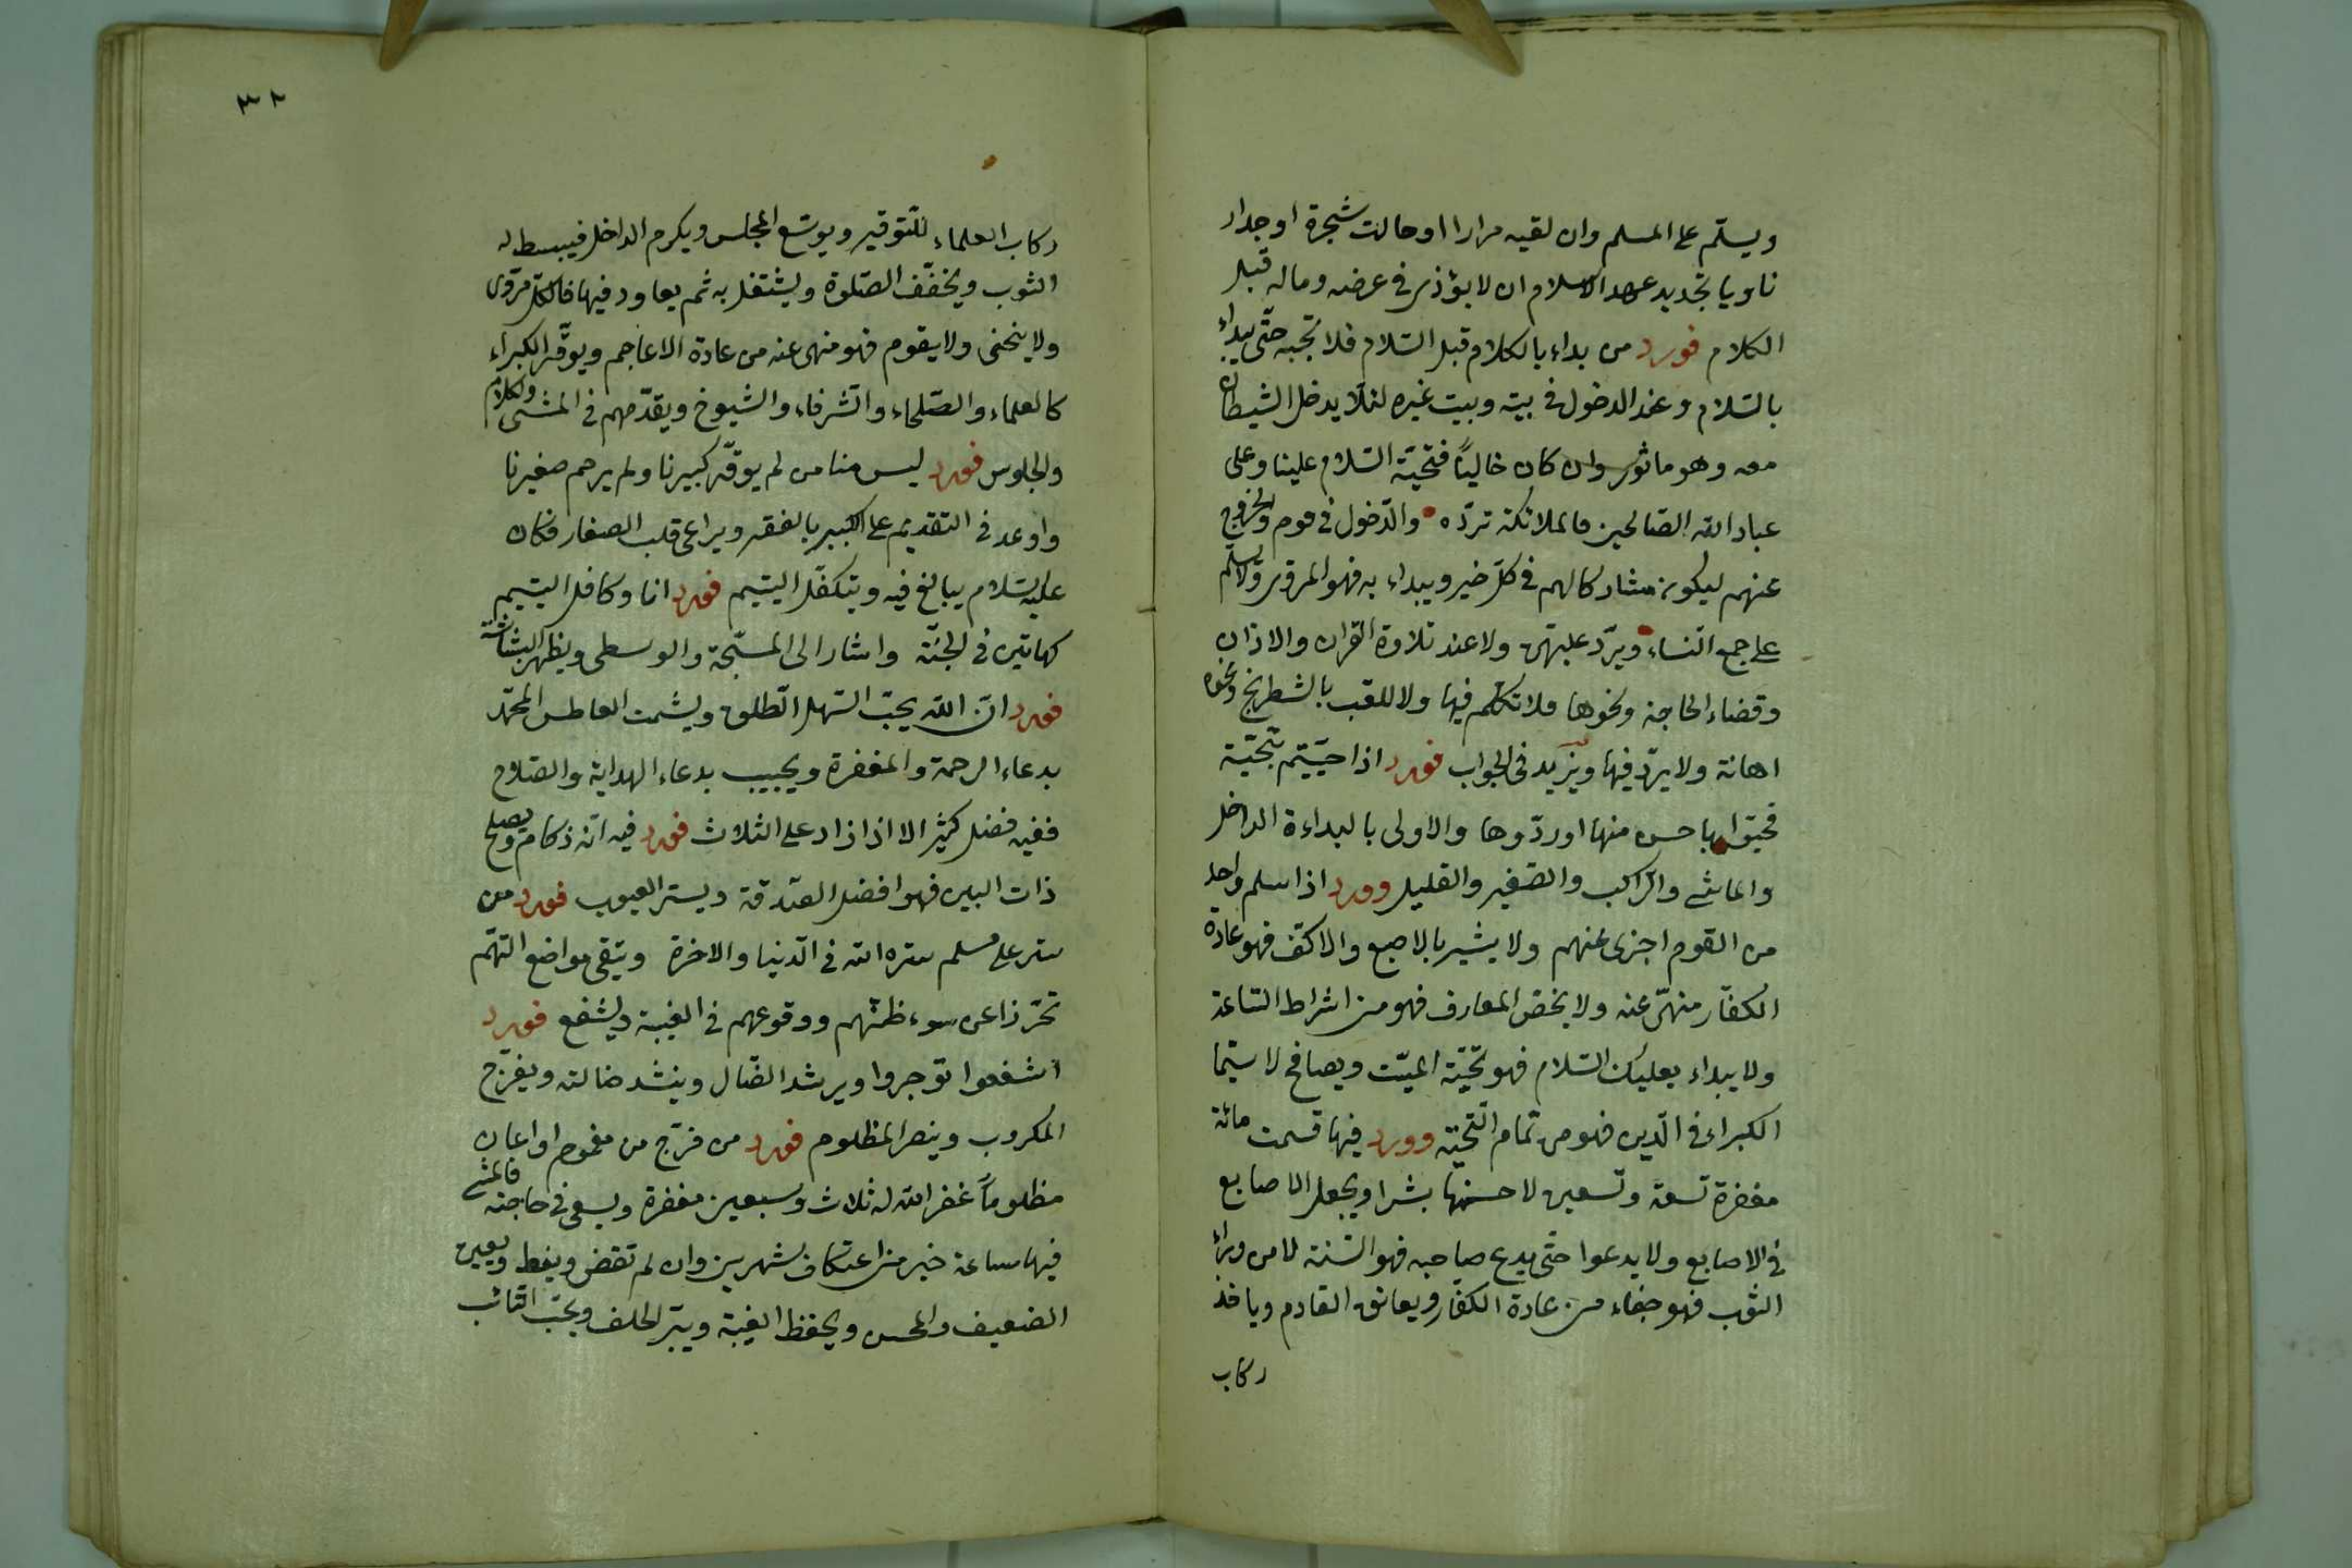 ويسلّم على المسلم وان لقيه مرارا او حالت شجرة او جدار
ناويا تجديد عهد الاسلام ان لا يؤذى فى عرضه وماله قبل
الكلام فورد من بداء بالكلام قبل السّلام فلا تجبه حتّى يبداء
بالسّلام وعند الدخول فى بيته وبيت غيره لئلّا يدخل الشيطان
معه وهو ماثور وان كان خاليًا فتحيّته السّلام علينا وعلى
عباد الله الصّالحين فالملائكة تردّه والدّخول فى قوم والخروج
عنهم ليكون مشاركا لهم فى كلّ خير ويبداء به فهو المروى ولا يسلّم
على جمع النّساء ويردّ عليهنّ ولا عند تلاوة القران والاذان
وقضاء الحاجة ونحوها فلا تكلّم فيها ولا للقب بالشطرنج ونحوه
اهانة ولا يردّ فيها ويزيد فى الجواب فورد اذا حيّيتم بتحيّة
فحيّوا باحسن منها او ردّوها والاولى بالبداءة الداخل
والماشى والرّاكب والصّغير والقليل وورد اذا سلم واحد
من القوم اجزى عنهم ولا يشير بالاصبع والاكفّ فهو عادة
الكفّار منهىّ عنه ولا يخصّ المعارف فهو من اشراط السّاعة
ولا يبداء بعليك السّلام فهو تحيّة الميّت ويصافح لا سيّما
الكبراء فى الّدين فهو من تمام التّحيّة وورد فيها قسمت مائة
مغفرة تسعة وتسعين لاحسنهما بشرا ويجعل الاصابع
فى الاصابع ولا يدعوا حتّى يدع صاحبه فهو السّنّة لا من وراء
الثوب فهو جفاء من عادة الكفّار ويعانق القادم وياخذ
ركاب
٣٢
ركاب العلماء للتّوقير ويوسّع المجلس ويكرم الداخل فيبسط له
الثوب ويخفّف الصّلوة ويشتغل به ثم يعاود فيها فالكلّ مروّى
ولا ينحنى ولا يقوم فهو منهى عنه من عادة الاعاجم ويوقّر الكبراء
كالعلماء والصّلحاء والشّرفاء والشيوخ ويقدّمهم فى المشى والكلام
والجلوس فورد ليس منا من لم يوقّر كبيرنا ولم يرحم صغيرنا
واوعد فى التقديم على الكبير بالفقر ويراعى قلب الصغار فكان
عليه السّلام يبالغ فيه ويتكفّل اليتيم فورد انا وكافل اليتيم
كهاتين فى الجنّة واشار الى المسبّحة والوسطى ويظهر البشاشة
فورد انّ الله يحبّ السّهل الطّلق ويشمت العاطس المحمّد
بدعاء الرحمة والمغفرة ويجيب بدعاء الهداية والصّلاح
ففيه فضل كثير الا اذا زاد على الثلاث فورد فيه انّه زكام ويصلح
ذات البين فهو افضل الصّدقة ويستر العيوب فورد من
ستر على مسلم ستره الله فى الّدنيا والاخرة ويتّقى مواضع التهّم
تحرّزا عن سوء ظنّهم ووقوعهم فى الغيبة ويشفع فورد
اشفعوا توجروا ويرشد الضّال وينشد ضالته ويفرّج
المكروب وينصر المظلوم فورد من فرّج من مغموم او اعان
مظلوماً غفر الله له ثلاث وسبعين مغفرة ويسعى فى حاجته فالمشى
فيها ساعة خير من اعتكاف شهرين وان لم تقض ويعين
الضعيف ويحفظ الغيبة ويبرّ الحلف ويحبّ التّائب